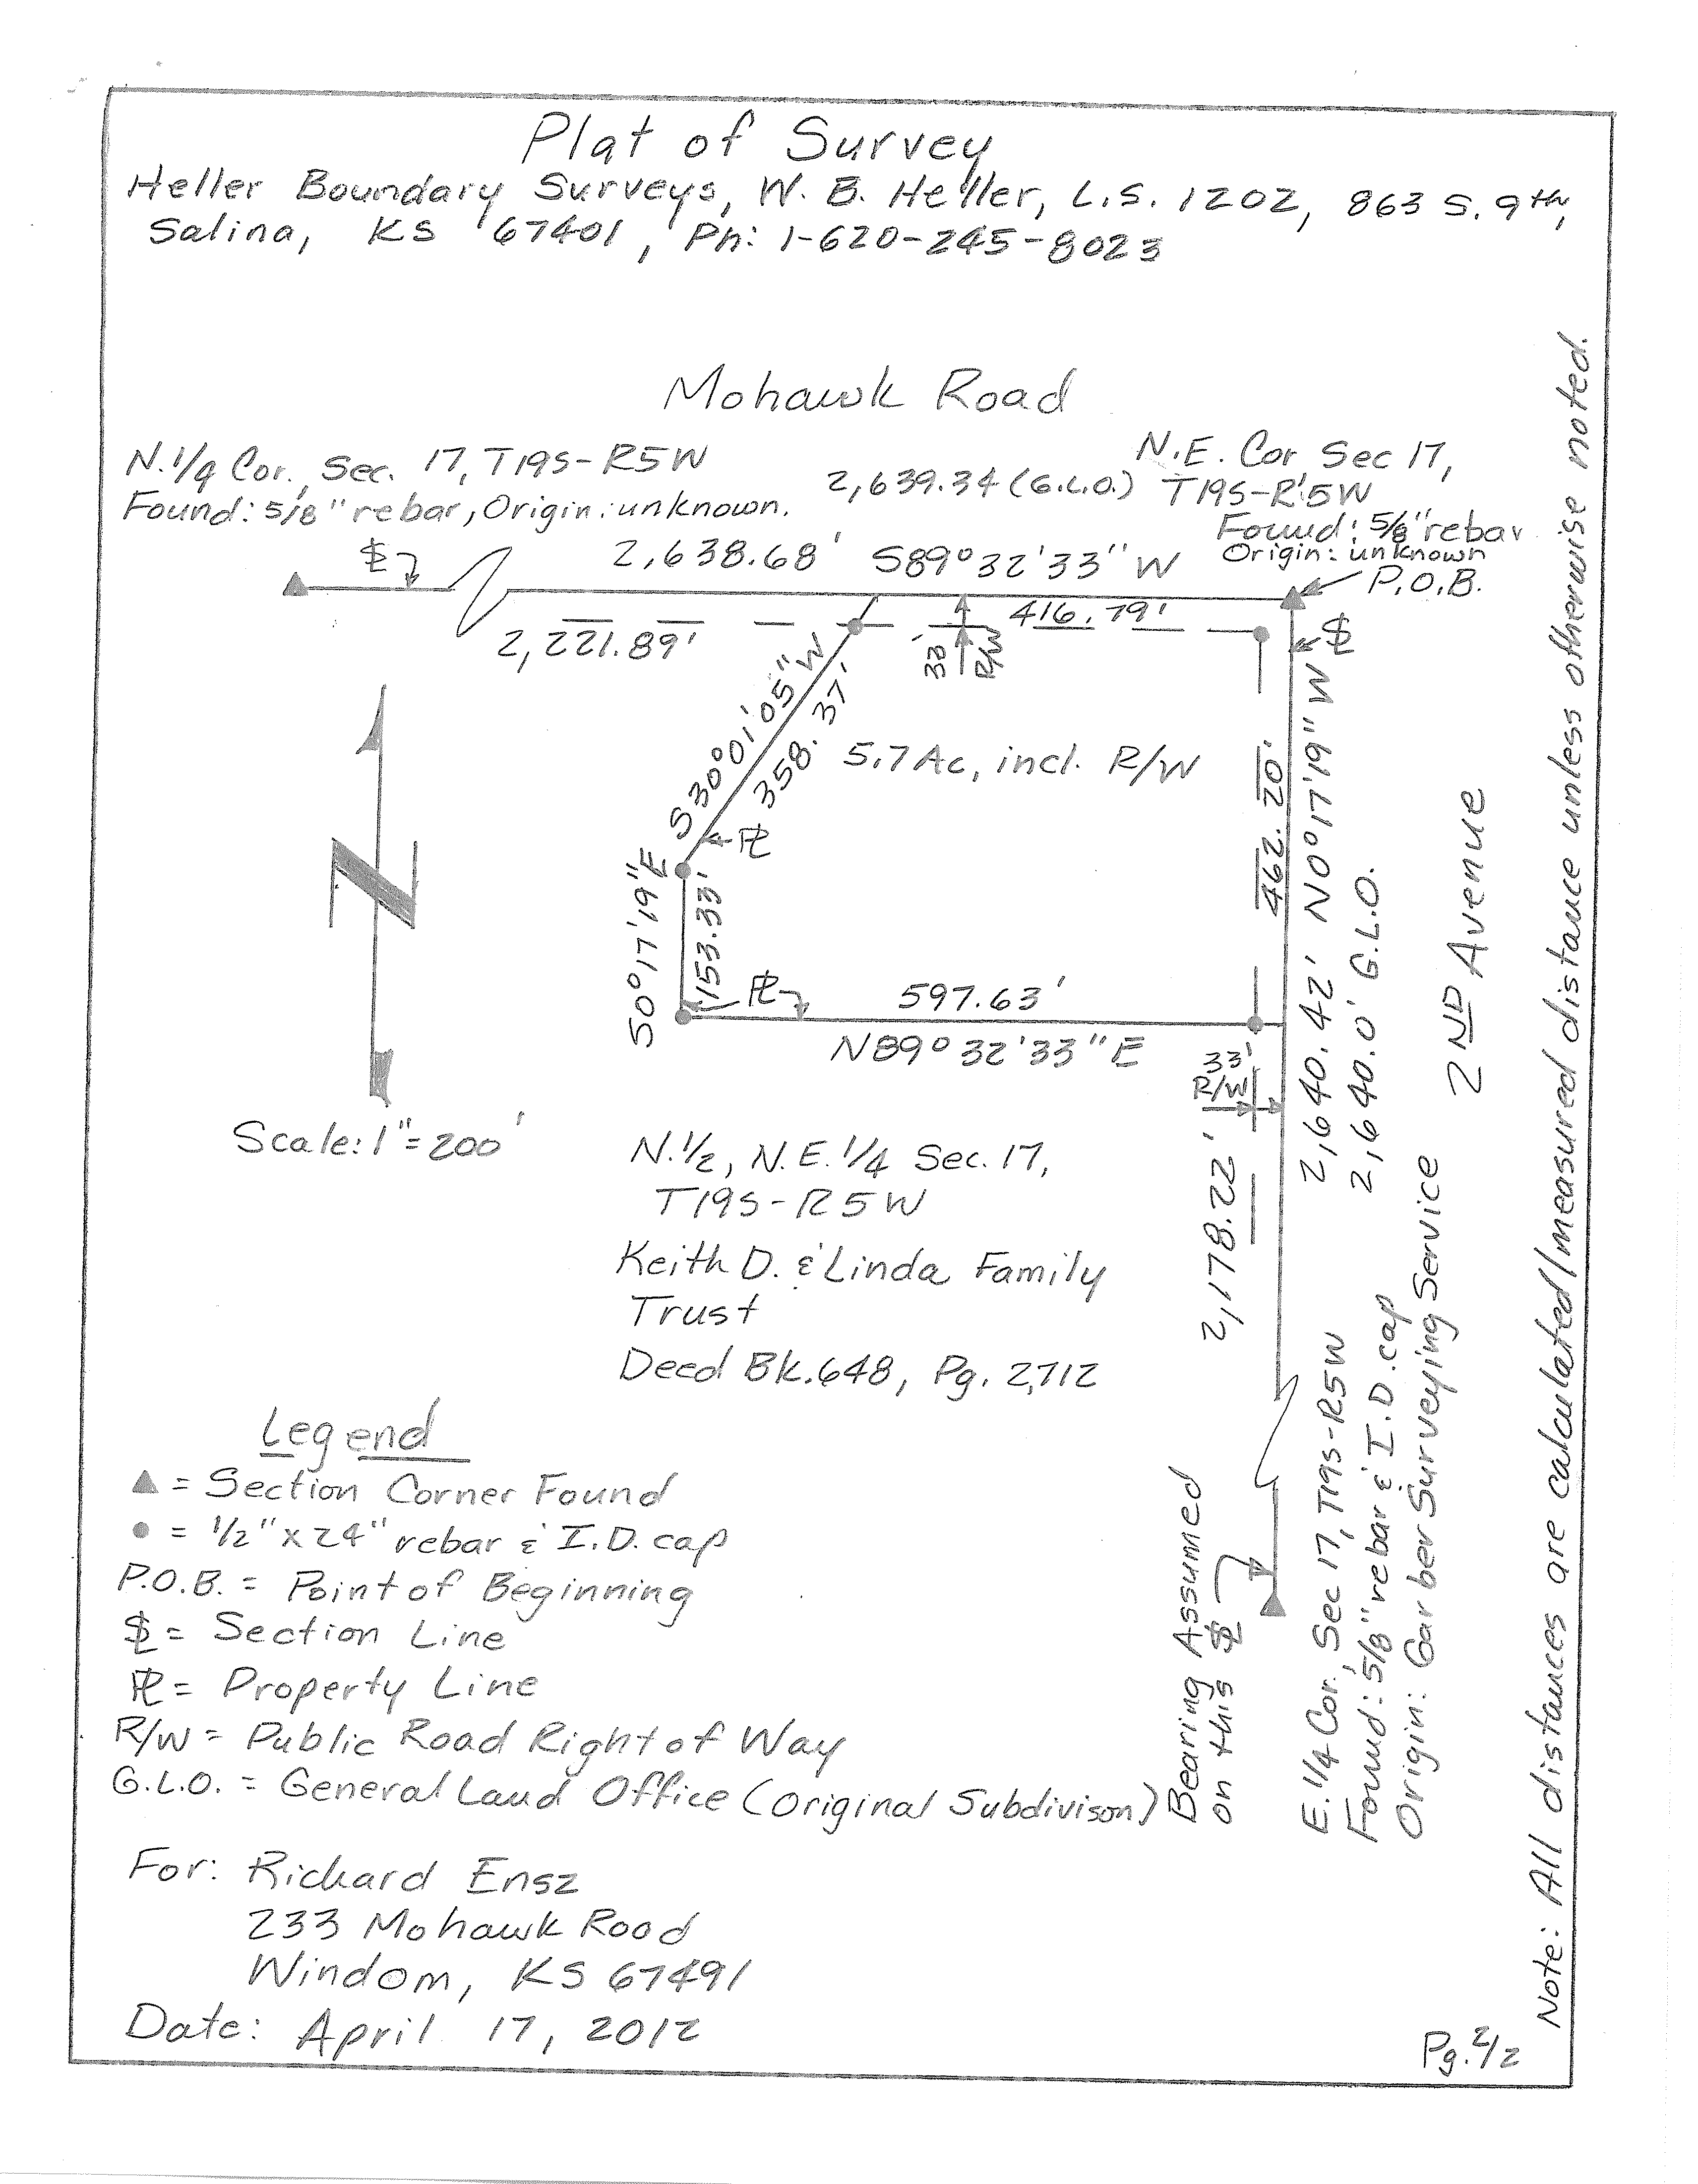 Plat of Survey
Heller Boundary Surveys, W. B. Heller, L.S. 1202, 863 S. 9th,
Salina, KS 67401, Ph: 1-620-245-8023
Mohawk Road
N. 1/4 Cor., Sec. 17, T19S-R5W
Found: 5/8" rebar, Origin: unknown.
2,639.34 (G.L.O.)
N.E. Cor Sec 17,
T19S-R5W
Found: 5/8" rebar
Origin: unknown
P.O.B.
SL
2,638.68' S89°32'33" W
416.79'
2,221.89'
33'
R/W
SL
S 30°01'05" W
358.37'
5.7 Ac, incl. R/W
PL
462.20'
2,640.42' N0°17'19" W
2,640.0' G.L.O.
2ND Avenue
S0°17'19" E
153.33'
PL
597.63'
N89°32'33" E
33'
R/W
2,178.22'
Scale: 1" = 200'
N. 1/2, N.E. 1/4 Sec. 17,
T19S-R5W
Keith D. & Linda Family
Trust
Deed Bk. 648, Pg. 2,712
Legend
▲ = Section Corner Found
● = 1/2" x 24" rebar & I.D. cap
P.O.B. = Point of Beginning
SL = Section Line
PL = Property Line
R/W = Public Road Right of Way
G.L.O. = General Land Office (Original Subdivison)
Bearing Assumed
on this SL
E. 1/4 Cor., Sec 17, T19S-R5W
Found: 5/8" rebar & I.D. cap
Origin: Garber Surveying Service
Note: All distances are calculated/measured distance unless otherwise noted.
For: Richard Ensz
233 Mohawk Road
Windom, KS 67491
Date: April 17, 2012
Pg. 2/2